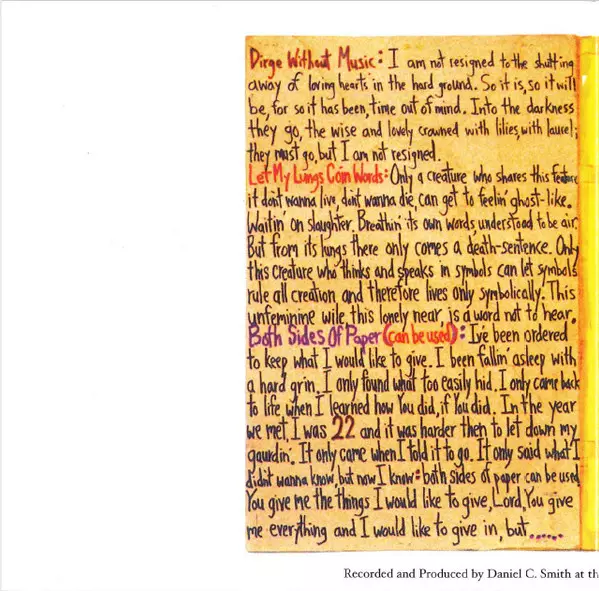 Dirge Without Music: I am not resigned to the shutting
away of loving hearts in the hard ground. So it is, so it will
be, for so it has been, time out of mind. Into the darkness
they go, the wise and lovely crowned with lilies, with laurel;
they must go, but I am not resigned.
Let My Lungs Coin Words: Only a creature who shares this feature
it don't wanna live, don't wanna die, can get to feelin' ghost-like.
Waitin' on slaughter. Breathin' its own words understood to be air.
But from its lungs there only comes a death-sentence. Only
this creature who thinks and speaks in symbols can let symbols
rule all creation and therefore lives only symbolically. This
unfeminine wile, this lonely near, is a word not to hear.
Both Sides Of Paper (can be used): I've been ordered
to keep what I would like to give. I been fallin' asleep with
a hard grin. I only found what too easily hid. I only came back
to life when I learned how You did, if You did. In the year
we met, I was 22 and it was harder then to let down my
gaurdin'. It only came when I told it to go. It only said what I
didn't wanna know, but now I know: both sides of paper can be used.
You give me the things I would like to give, Lord, You give
me everything and I would like to give in, but ......
Recorded and Produced by Daniel C. Smith at th